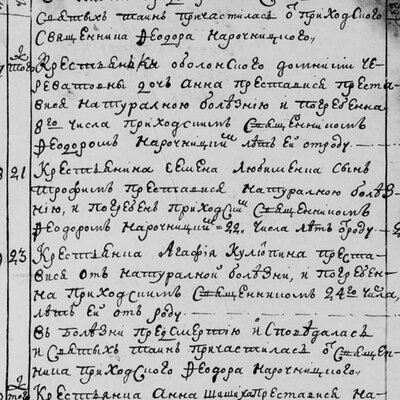 Святыхъ таинъ причастилась ѿ приходского
священника Ѳеодора Нарочницкого.
Крестьянки оболонского домниии че-
реватовны дочь Анна преставися преста-
вися натуралною болѣзнію и погребенна
8го числа приходскимъ священникомъ
Ѳеодоромъ Нарочницкимъ лѣтъ ей отроду.
21 Крестьянина Семена Любименка сынъ
трофимъ преставися натуралною болѣз-
нію, и погребенъ приходскимъ священникомъ
Ѳеодоромъ Нарочницкимъ 22. числа лѣтъ ѿроду
23 Крестьянка Агафія Кулюпина преста-
вися отъ натуралной болѣзни, и погребен-
на приходскимъ священникомъ 24го числа,
лѣтъ ей отъ роду
въ болѣзни предсмертію и исповѣдалась
и святыхъ таинъ причастилась ѿ священ-
ника приходского Ѳеодора Нарочницкого.
Крестьянка Анна преставися на-